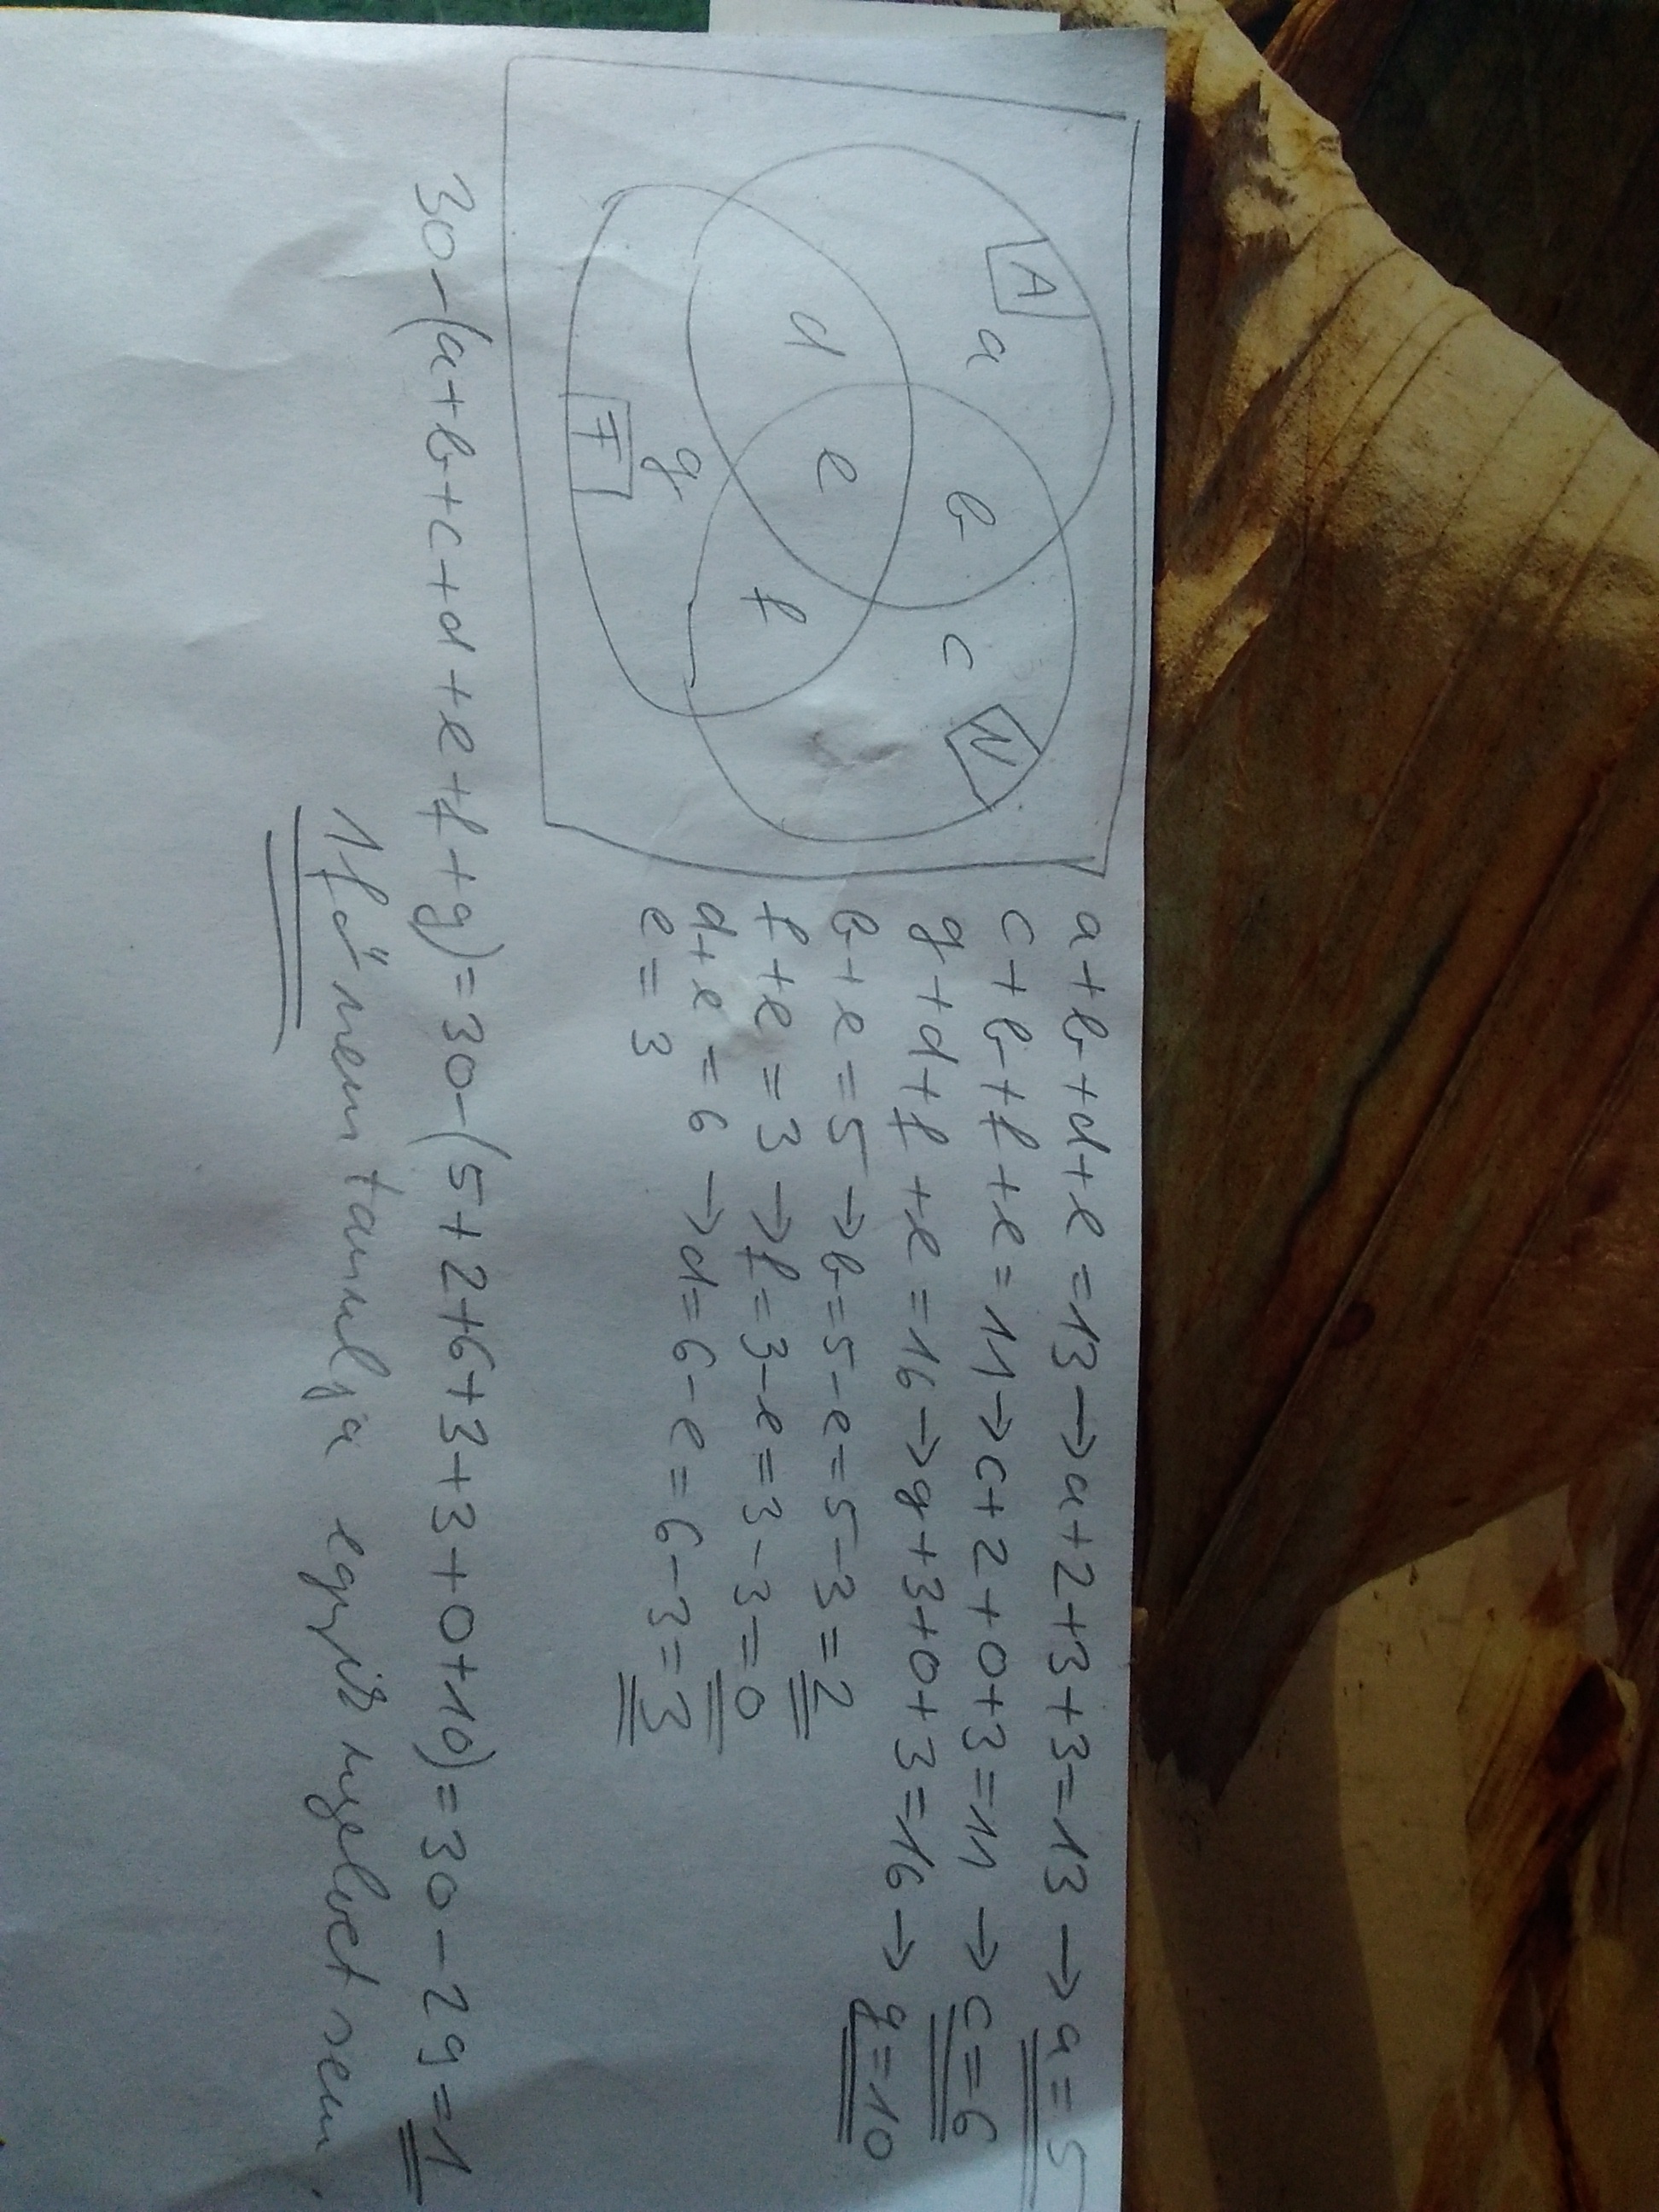 A
a
b
c
N
d
e
f
g
F
a+b+d+e=13→a+2+3+3=13→a=5
c+b+f+e=11→c+2+0+3=11→c=6
g+d+f+e=16→g+3+0+3=16→g=10
b+e=5→b=5-e=5-3=2
f+e=3→f=3-e=3-3=0
d+e=6→d=6-e=6-3=3
e=3
30-(a+b+c+d+e+f+g)=30-(5+2+6+3+3+0+10)=30-29=1
1 fő nem tanulja egyik nyelvet sem.